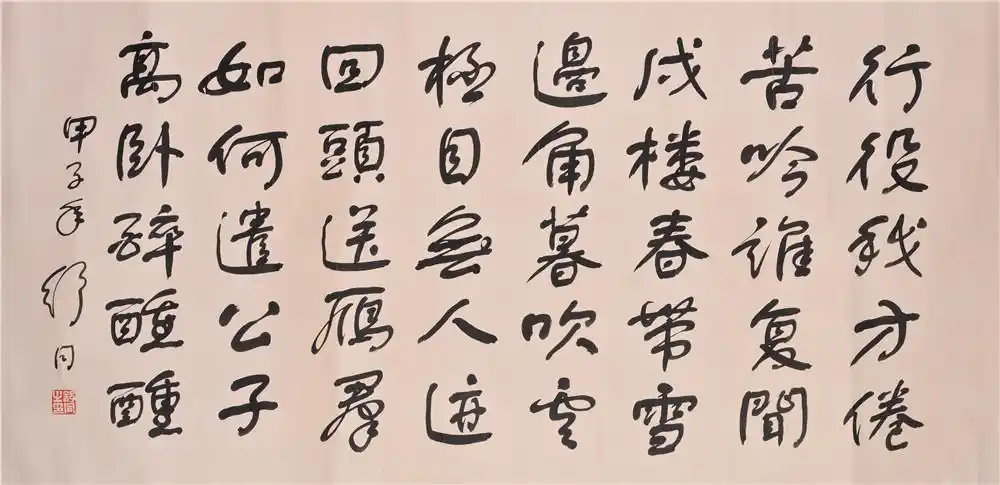 行役我方倦
苦吟誰复聞
戍楼春帶雪
邊角暮吹雲
極目無人迹
回頭送鴈羣
如何遣公子
高卧醉醺醺
甲子年 舒同